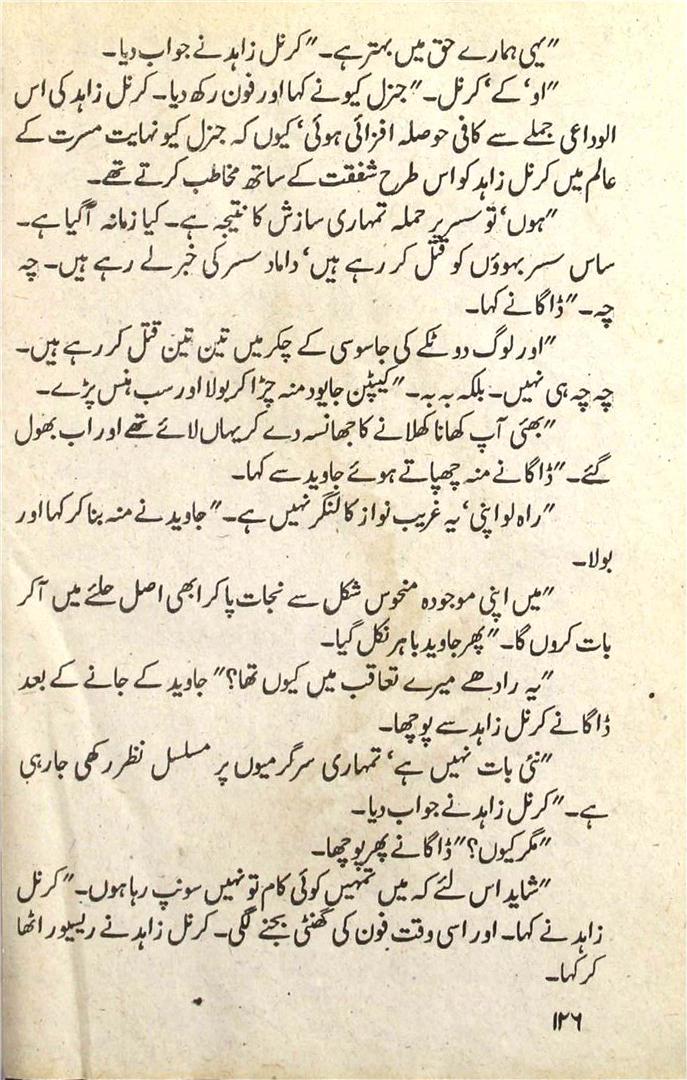 "یہی ہمارے حق میں بہتر ہے۔" کرنل زاہد نے جواب دیا۔
"او' کے' کرنل۔" جنرل کیو نے کہا اور فون رکھ دیا۔ کرنل زاہد کی اس
الوداعی جملے سے کافی حوصلہ افزائی ہوئی' کیوں کہ جنرل کیو نہایت مسرت کے
عالم میں کرنل زاہد کو اس طرح شفقت کے ساتھ مخاطب کرتے تھے۔
"ہوں' تو سسر پر حملہ تمہاری سازش کا نتیجہ ہے۔ کیا زمانہ آگیا ہے۔
ساس سسر بہوؤں کو قتل کر رہے ہیں' داماد سسر کی خبر لے رہے ہیں۔ چہ
چہ۔" ڈاگا نے کہا۔
"اور لوگ دو ٹکے کی جاسوسی کے چکر میں تین تین قتل کر رہے ہیں۔
چہ چہ ہی نہیں۔ بلکہ بہ بہ۔" کیپٹن جایود منہ چڑا کر بولا اور سب ہنس پڑے۔
"بھئی آپ کھانا کھلانے کا جھانسہ دے کر یہاں لائے تھے اور اب بھول
گئے۔" ڈاگا نے منہ چھپاتے ہوئے جاوید سے کہا۔
"راہ لو اپنی' یہ غریب نواز کا لنگر نہیں ہے۔" جاوید نے منہ بنا کر کہا اور
بولا۔
"میں اپنی موجودہ منحوس شکل سے نجات پا کر ابھی اصل حلئے میں آکر
بات کروں گا۔" پھر جاوید باہر نکل گیا۔
"یہ رادھے میرے تعاقب میں کیوں تھا؟" جاوید کے جانے کے بعد
ڈاگا نے کرنل زاہد سے پوچھا۔
"نئی بات نہیں ہے' تمہاری سرگرمیوں پر مسلسل نظر رکھی جارہی
ہے۔" کرنل زاہد نے جواب دیا۔
"مگر کیوں؟" ڈاگا نے پھر پوچھا۔
"شاید اس لئے کہ میں تمہیں کوئی کام تو نہیں سونپ رہا ہوں۔" کرنل
زاہد نے کہا۔ اور اسی وقت فون کی گھنٹی بجنے لگی۔ کرنل زاہد نے ریسیور اٹھا
کر کہا۔
۱۲۶